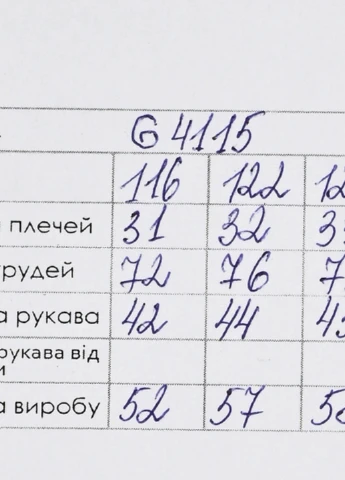 G 4115
116 122 12
плечей 31 32 3
рудей 72 76 7
а рукава 42 44 4
рукава від
и
а виробу 52 57 5